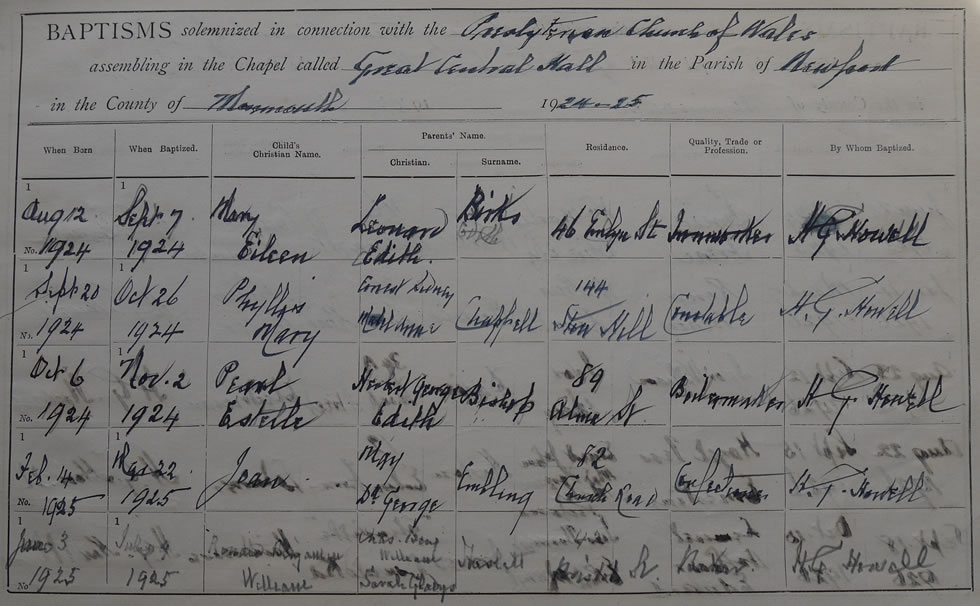 BAPTISMS solemnized in connection with the Presbyterian Church of Wales
assembling in the Chapel called Great Central Hall in the Parish of Newport
in the County of Monmouth 1924-25
When Born When Baptized. Child's Christian Name. Parents' Name. Christian. Surname. Residence. Quality, Trade or Profession. By Whom Baptized.
1 1
Aug 12 Sept 7 Mary Leonard Birks 46 Evelyn St Ironworker H G Howell
No. 1924 1924 Eileen Edith.
1
Sept 20 Oct 26 Phyllis Ernest Sidney Chappell 144 Constable H. G. Howell
No. 1924 1924 Mary Stow Hill
1 1
Oct 6 Nov. 2 Pearl Herbert George Bishop 89 Boilermaker H G Howell
No. 1924 1924 Estelle Edith Alma St
1 1
Feb. 14 Mar 22 Jean May Embling 82 Confectioner H. G. Howell
No. 1925 1925 George Church Road
1 1
3 William H G Howell
No 1925 1925 William Sarah Gladys St